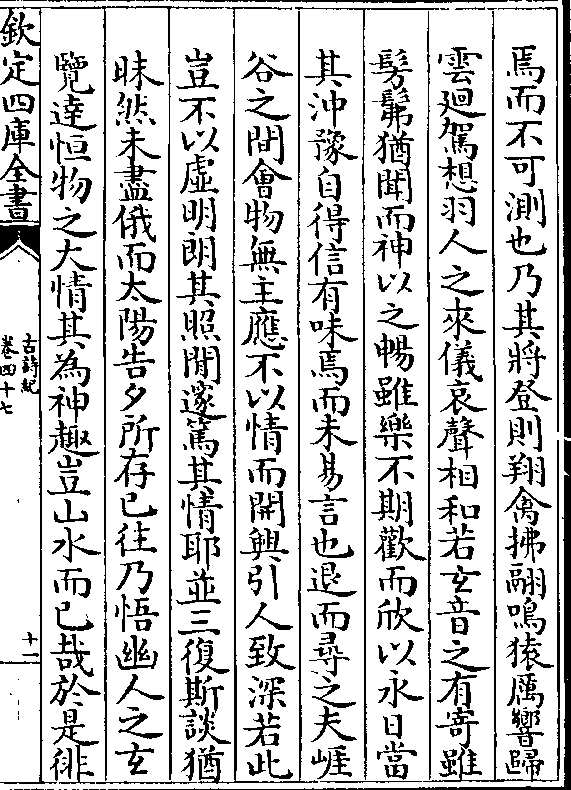 焉而不可測也乃其將登則翔禽拂翮鳴猿厲響歸
雲廻駕想羽人之來儀哀聲相和若玄音之有寄雖
髣髴猶聞而神以之暢雖樂不期歡而欣以永日當
其沖豫自得信有味焉而未易言也退而尋之夫崕
谷之間會物無主應不以情而開興引人致深若此
豈不以虛明朗其照閒邃篤其情耶並三復斯談猶
昧然未盡俄而太陽告夕所存已往乃悟幽人之玄
覽達恒物之大情其為神趣豈山水而已哉於是徘
欽定四庫全書
古詩紀
卷四十七
十一